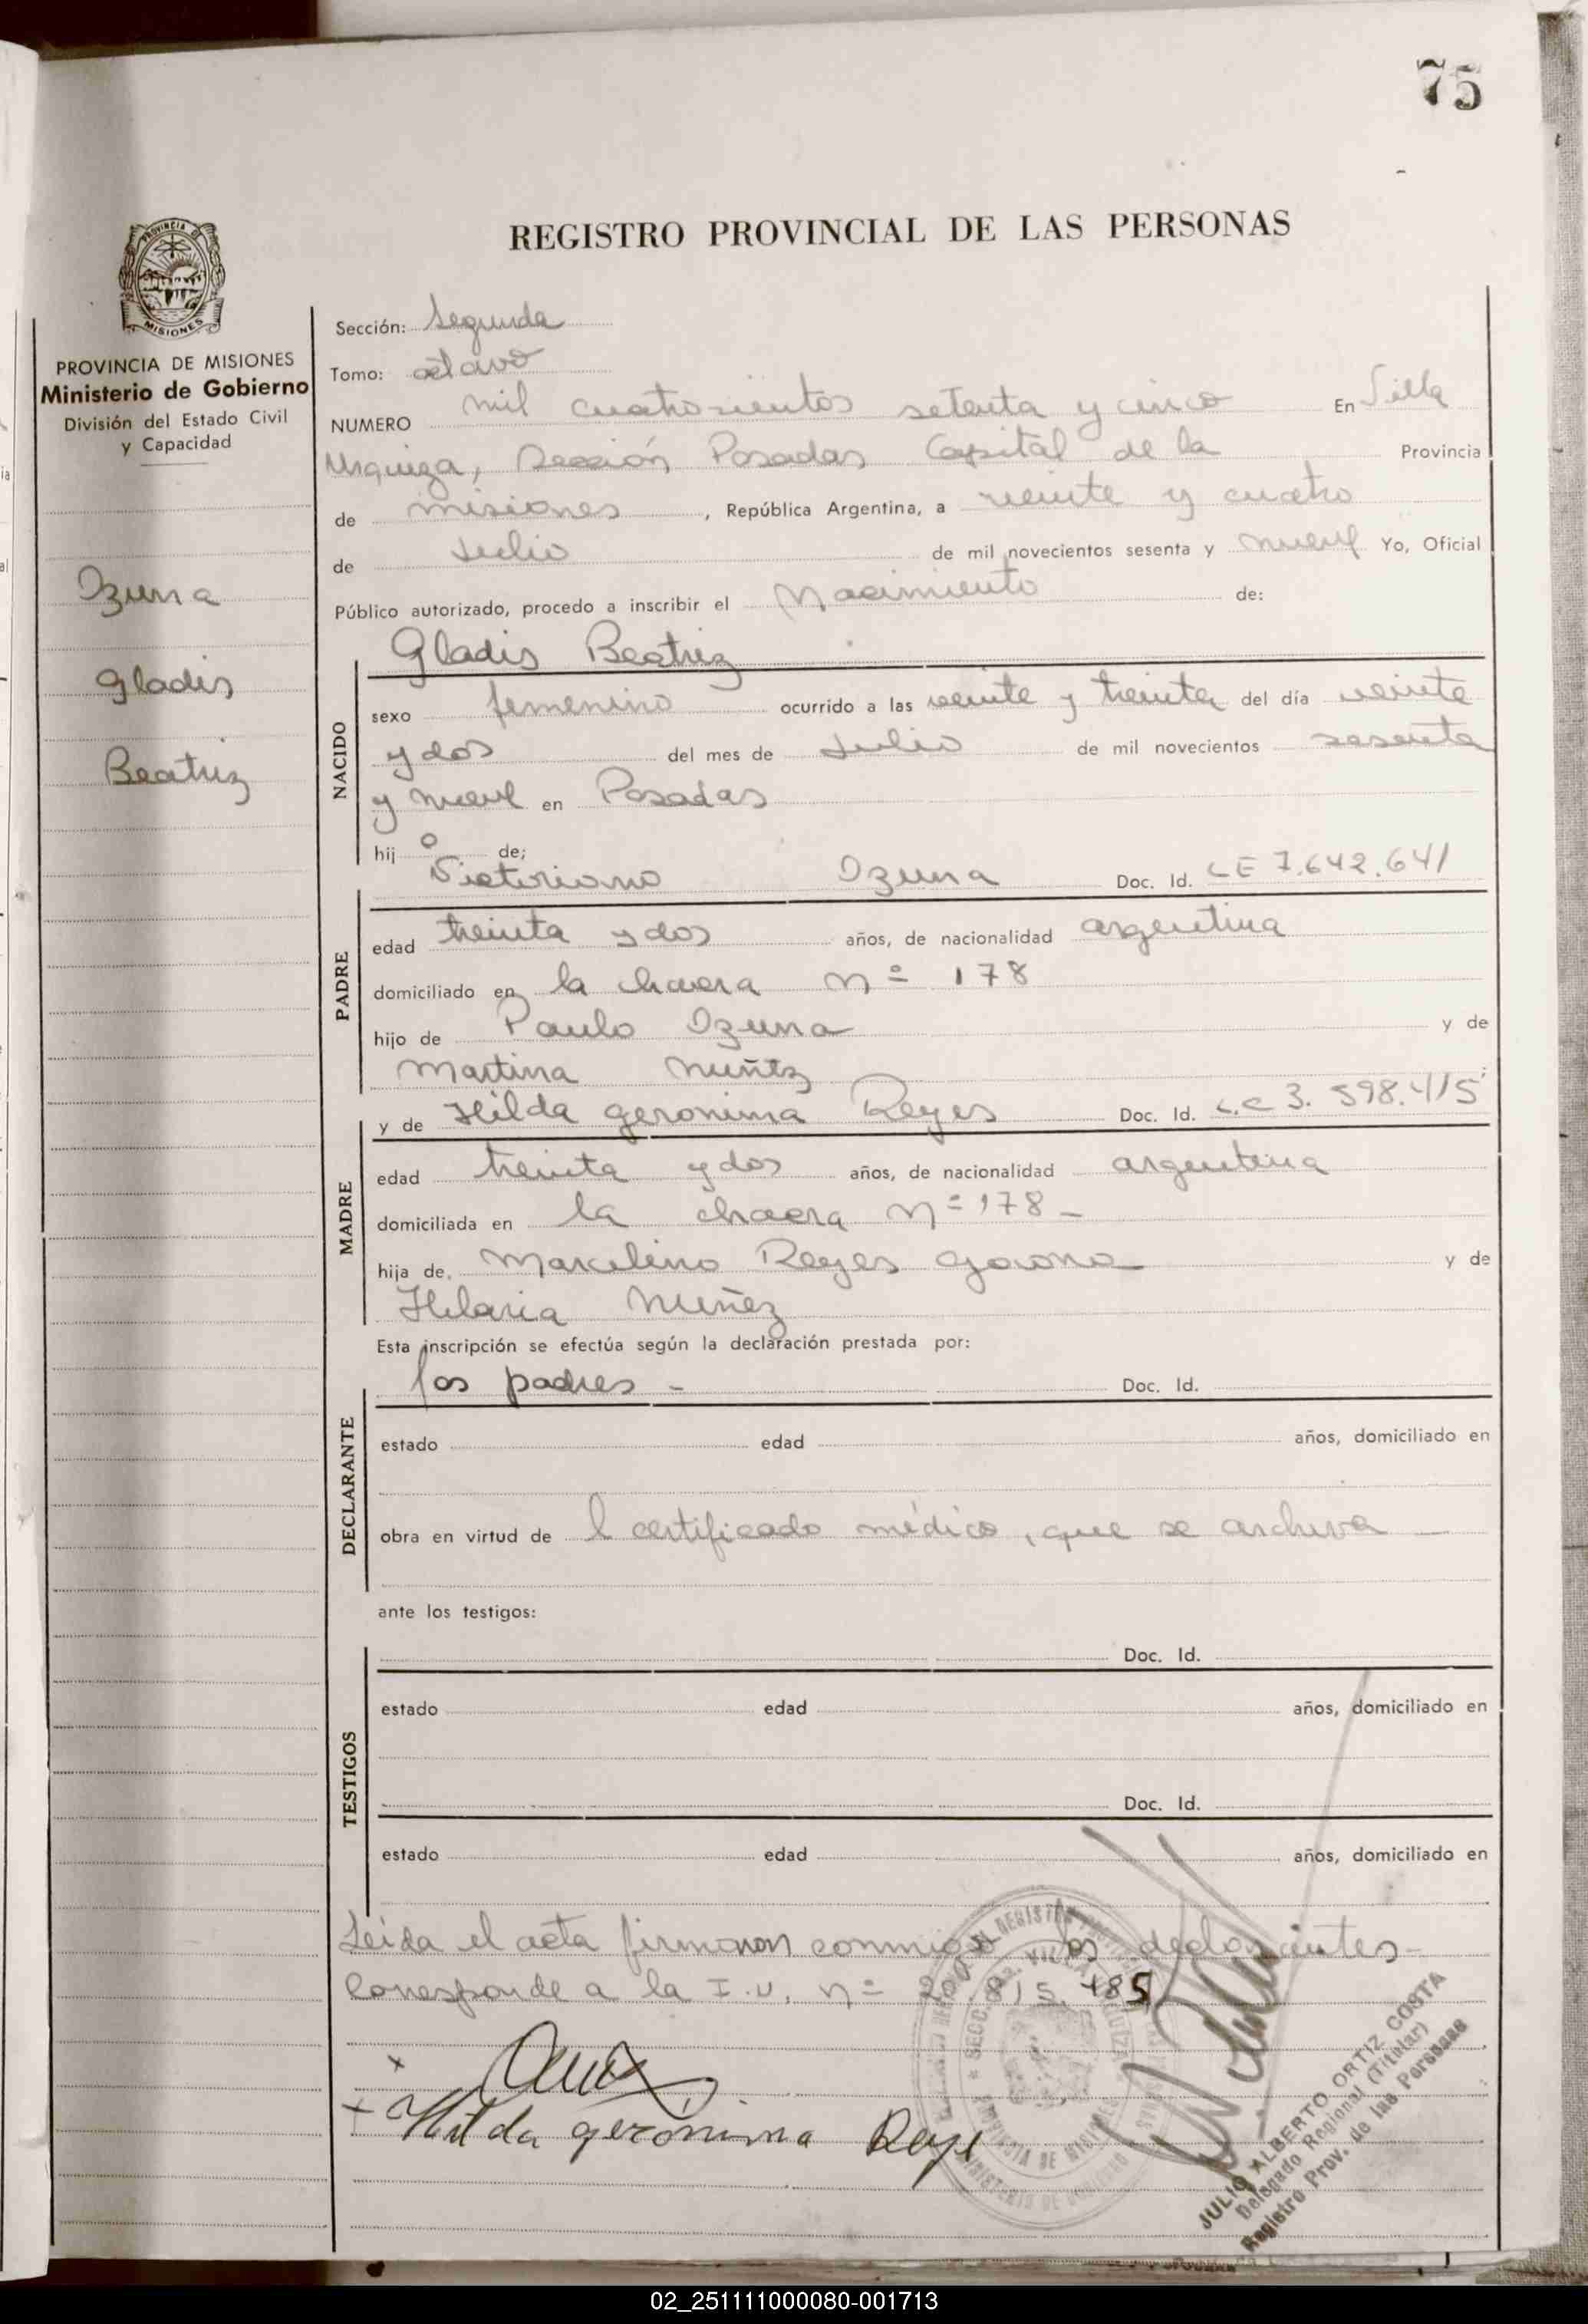 75
REGISTRO PROVINCIAL DE LAS PERSONAS
PROVINCIA DE MISIONES
Ministerio de Gobierno
División del Estado Civil
y Capacidad
Ozuna
Gladis
Beatriz
Sección: Segunda
Tomo: octavo
NUMERO mil cuatrocientos setenta y cinco En Villa
Urquiza, Sección Posadas Capital de la Provincia
de misiones, República Argentina, a veinte y cuatro
de Julio de mil novecientos sesenta y nueve Yo, Oficial
Público autorizado, procedo a inscribir el Nacimiento de:
Gladis Beatriz
NACIDO
sexo femenino ocurrido a las veinte y treinta del día veinte
y dos del mes de Julio de mil novecientos sesenta
y nueve en Posadas
hij o de;
Victoriano Ozuna Doc. Id. LE 7.642.641
PADRE
edad treinta y dos años, de nacionalidad argentina
domiciliado en la chacra nº 178
hijo de Paulo Ozuna y de
Martina Nuñez
y de Hilda geronima Reyes Doc. Id. L.C 3.598.415
MADRE
edad treinta y dos años, de nacionalidad argentina
domiciliada en la chacra nº 178 -
hija de, Marcelino Reyes Gaona y de
Hilaria Nuñez
Esta inscripción se efectúa según la declaración prestada por:
los padres - Doc. Id.
DECLARANTE
estado edad años, domiciliado en
obra en virtud de l certificado médico, que se archiva -
ante los testigos:
Doc. Id.
TESTIGOS
estado edad años, domiciliado en
Doc. Id.
estado edad años, domiciliado en
Leida el acta firmaron conmigo los declarantes -
Corresponde a la I.U. nº 20.815.485
x
x Hilda gerónima Reye
JULIO ALBERTO ORTIZ COSTA
Delegado Regional (Titular)
Registro Prov. de las Personas
02_251111000080-001713